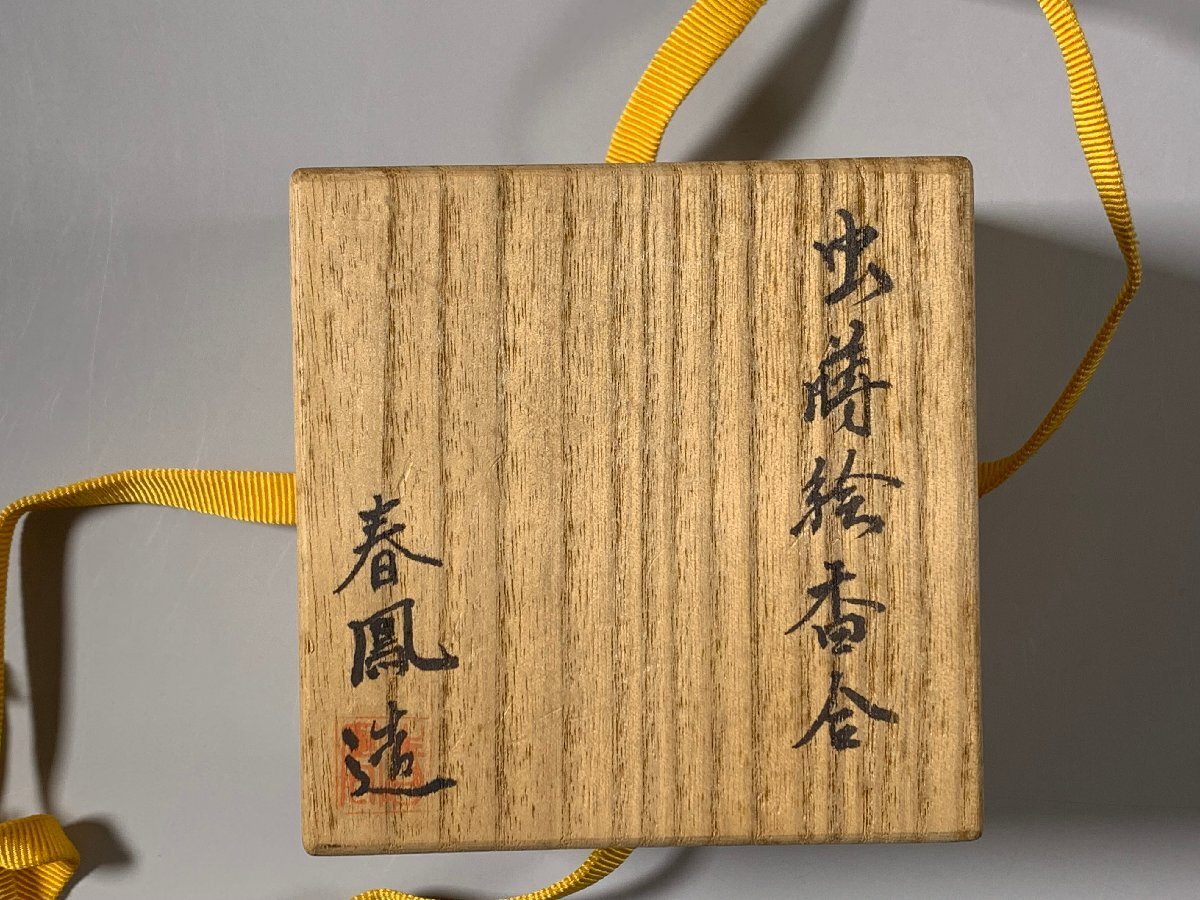 虫蒔絵香合
春鳳造